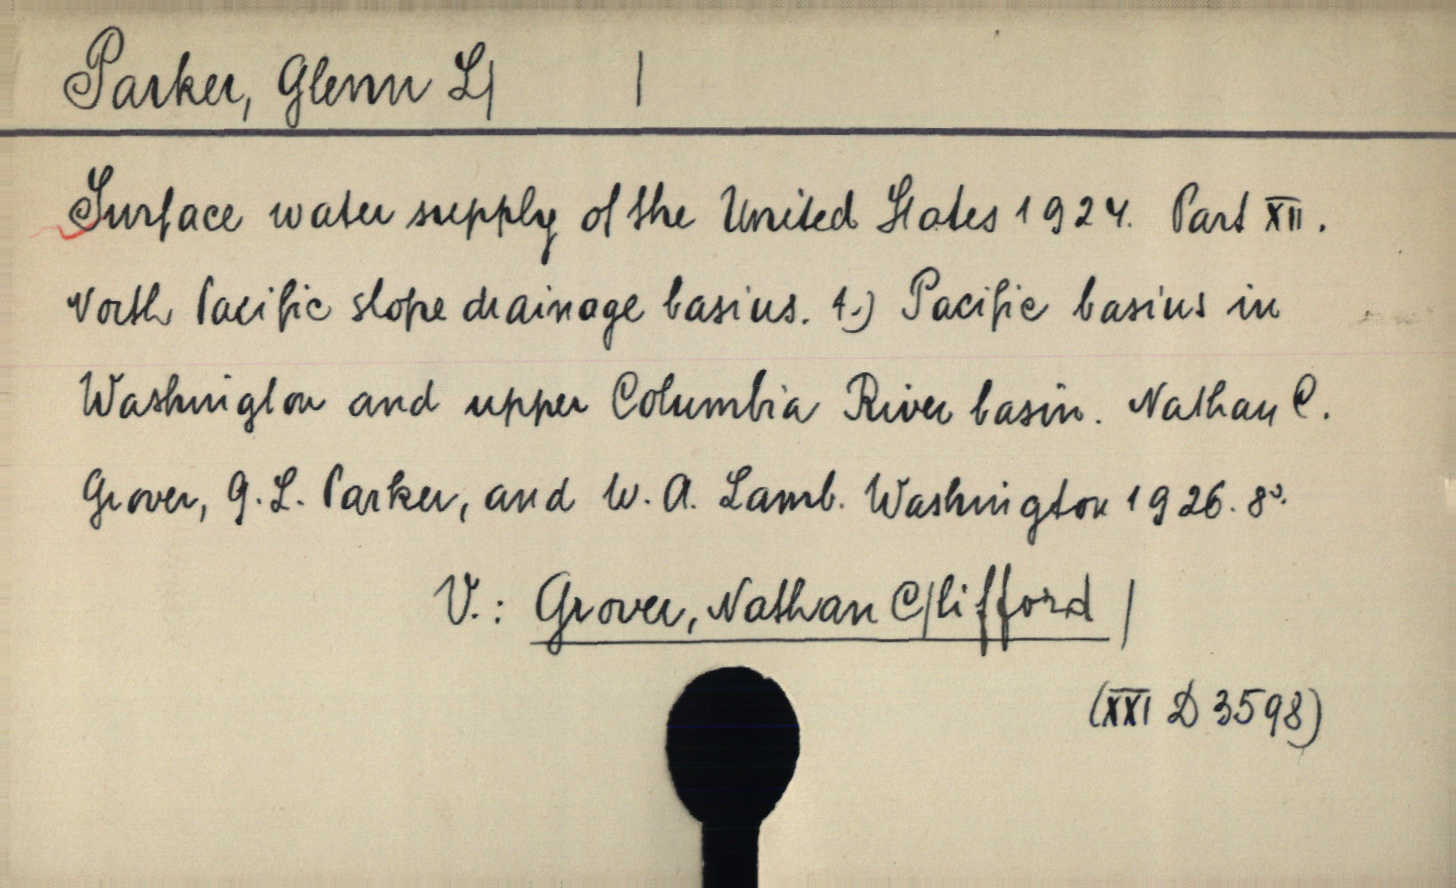 Parker, Glenn L| |
Surface water supply of the United States 1924. Part XII.
North Pacific slope drainage basins. 1.) Pacific basins in
Washington and upper Columbia River basin. Nathan C.
Grover, G. L. Parker, and W. A. Lamb. Washington 1926. 8°.
V.: Grover, Nathan C|lifford |
(XXI D 3598)